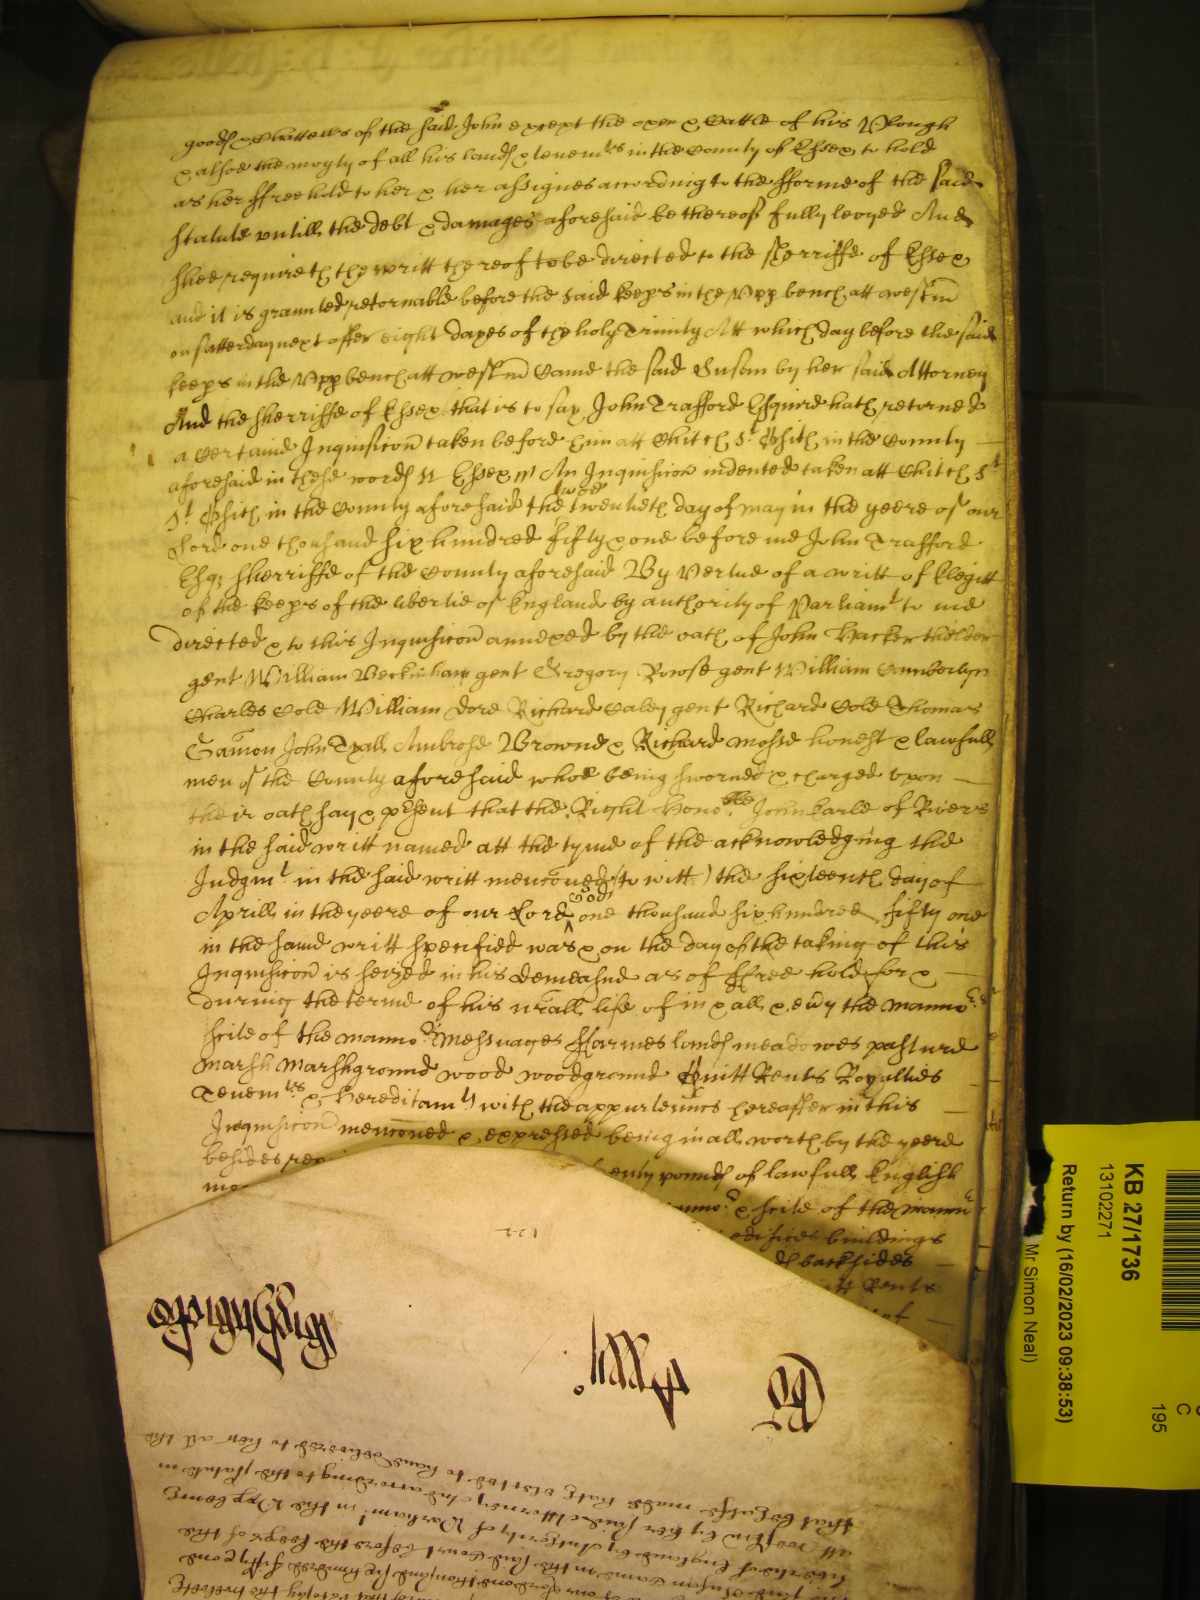 goods & Chattells of the said John except the oxen & Cattle of his Plough
& alsoe the moyty of all his lands & tenemts in the County of Essex to hold
as her ffreehold to her & her assignes according to the fforme of the said
Statute untill the debt & damages aforesaid be thereof fully levyed And
shee requireth the writt thereof to be directed to the Sherriffe of Essex
and it is graunted retornable before the said keeps in the Upp bench att Westm
on Satterday next after eight dayes of the holy Trinity Att which day before the said
keeps in the Upp bench att Westm Came the said Susan by her said Attorney
And the Sherriffe of Essex that is to say John Trafford Esquire hath returned
a Certaine Inquisicon taken before him att Chitch St Osith in the County
aforesaid in these words ss Essex ss An Inquisicon indented taken att Chitch St
St Osith in the County aforesaid the twoe twentieth day of may in the yeere of our
Lord one thousand six hundred fifty & one before me John Trafford
Esqr Sherriffe of the County aforesaid By Vertue of a writt of Elegitt
of the keeps of the libertie of England by authority of Parliamt to me
directed & to this Inquisicon annexed by the oath of John Hacker thelder
gent William Beckinham gent Gregory Rowse gent William Camberlyn
Charles Cole William Dore Richard Caley gent Richard Cole Thomas
Gamon John Tyall Ambrose Browne & Richard Mosse honest & lawfull
men of the County aforesaid whoe being sworne & charged upon
their oath say & psent that the Right Honoble John Earle of Rivers
in the said writt named att the tyme of the acknowledging the
Judgmt in the said writt menconed (to witt) the sixteenth day of
Aprill in the yeere of our Lord God one thousand six hundred fifty one
in the same writt specified was & on the day of the taking of this
Inquisicon is seized in his demeasne as of ffree hold for &
during the terme of his nrall life of in & all & evy the mannor
scite of the mannor Messuages ffarmes lands meadowes pasture
Marsh Marshground wood woodground Quitt Rents Royalties
Tenemts & Hereditamts with the appurtennces hereafter in this
Inquisicon menconed & expressed being in all worth by the yeere
besides pounds of lawfull English
& scite of the mannor
edifices buildings
backsides
Rents
of
KB 27/1736
13102271
Return by (16/02/2023 09:38:53)
Mr Simon Neal)
C
195
122
that behalfe made hath elected to have delivered to her all the
att Westm by her said Attorney And according to the statute in
libertie of England by Authority of Parliamt in the Upp bench
said Susan Came in the said Court before the keeps of the
of our Lord one thousand six hundred fifty one